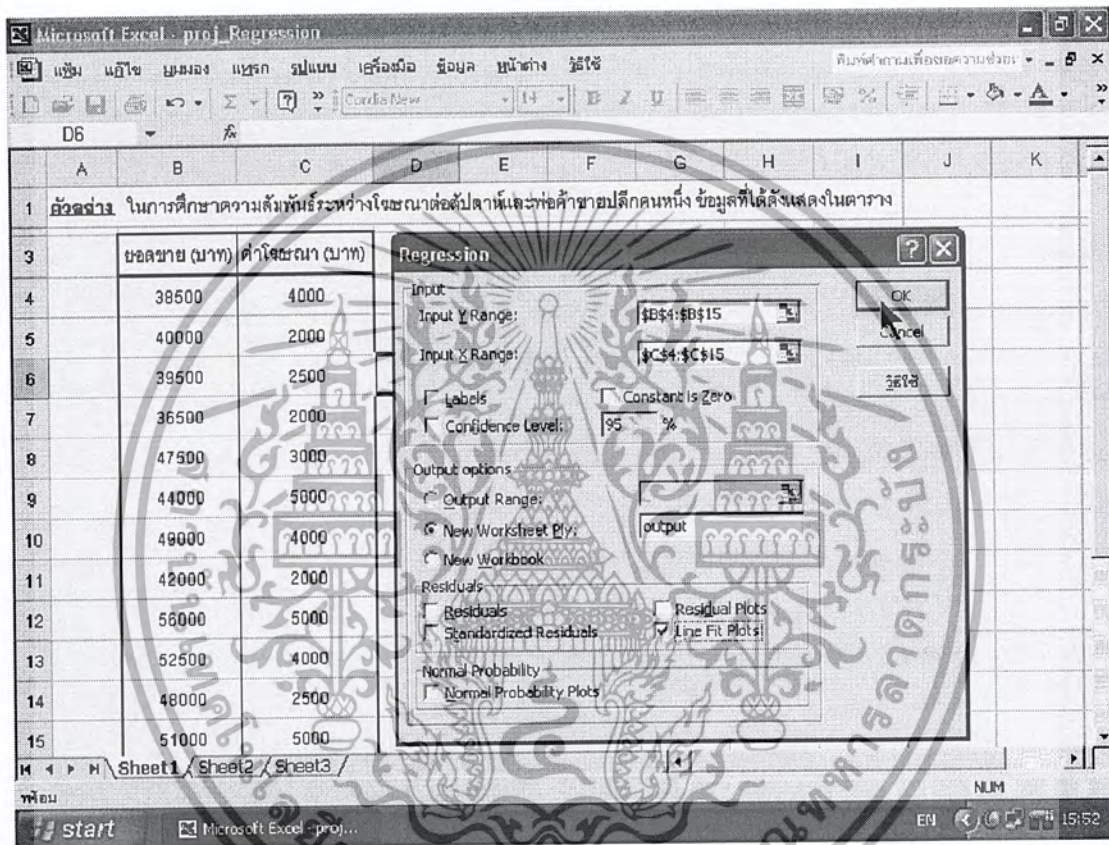 Microsoft Excel - proj_Regression
แฟ้ม แก้ไข มุมมอง แทรก รูปแบบ เครื่องมือ ข้อมูล หน้าต่าง วิธีใช้ พิมพ์คำถามเพื่อขอความช่วยเหลือ
Cordia New 14 B I U
D6 fx
A B C D E F G H I J K
1 ตัวอย่าง ในการศึกษาความสัมพันธ์ระหว่างโฆษณาต่อสัปดาห์และพ่อค้าขายปลีกคนหนึ่ง ข้อมูลที่ได้ดังแสดงในตาราง
3 ยอดขาย (บาท) ค่าโฆษณา (บาท)
4 38500 4000
5 40000 2000
6 39500 2500
7 36500 2000
8 47500 3000
9 44000 5000
10 49000 4000
11 42000 2000
12 56000 5000
13 52500 4000
14 48000 2500
15 51000 5000
Regression
Input
Input Y Range: $B$4:$B$15
Input X Range: $C$4:$C$15
Labels Constant is Zero
Confidence Level: 95 %
Output options
Output Range:
New Worksheet Ply: output
New Workbook
Residuals
Residuals Residual Plots
Standardized Residuals Line Fit Plots
Normal Probability
Normal Probability Plots
OK
Cancel
วิธีใช้
Sheet1 Sheet2 Sheet3
พร้อม NUM
start Microsoft Excel - proj... EN 15:52